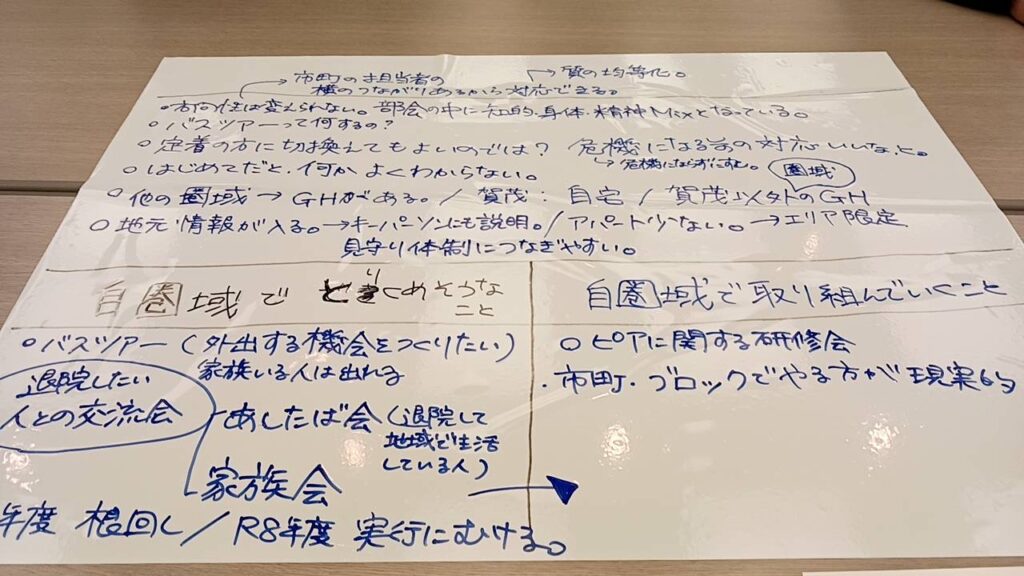 →市町の担当者の
横のつながりあるから対応できる。
→質の均等化。
○方向性は変えられない。部会の中に知的、身体・精神Mixとなっている。
○バスツアーって何するの?
○定着の方に切換えてもよいのでは? 危機になる前の対応いいな、と。
→危機にならずにすむ。
○はじめてだと、何かよくわからない。
圏域
○他の圏域→GHがある。/賀茂:自宅/賀茂以外のGH
○地元情報が入る。→キーパーソンにも説明。/アパート少ない。→エリア限定
見守り体制につなぎやすい。
自圏域で とりくめそうな
こと
○バスツアー(外出する機会をつくりたい)
家族いる人は出れる
退院したい
人との交流会
あしたば会(退院して
地域で生活
している人)
家族会
年度 根回し/R8年度 実行にむける。
自圏域で取り組んでいくこと
○ピアに関する研修会
・市町・ブロックでやる方が現実的